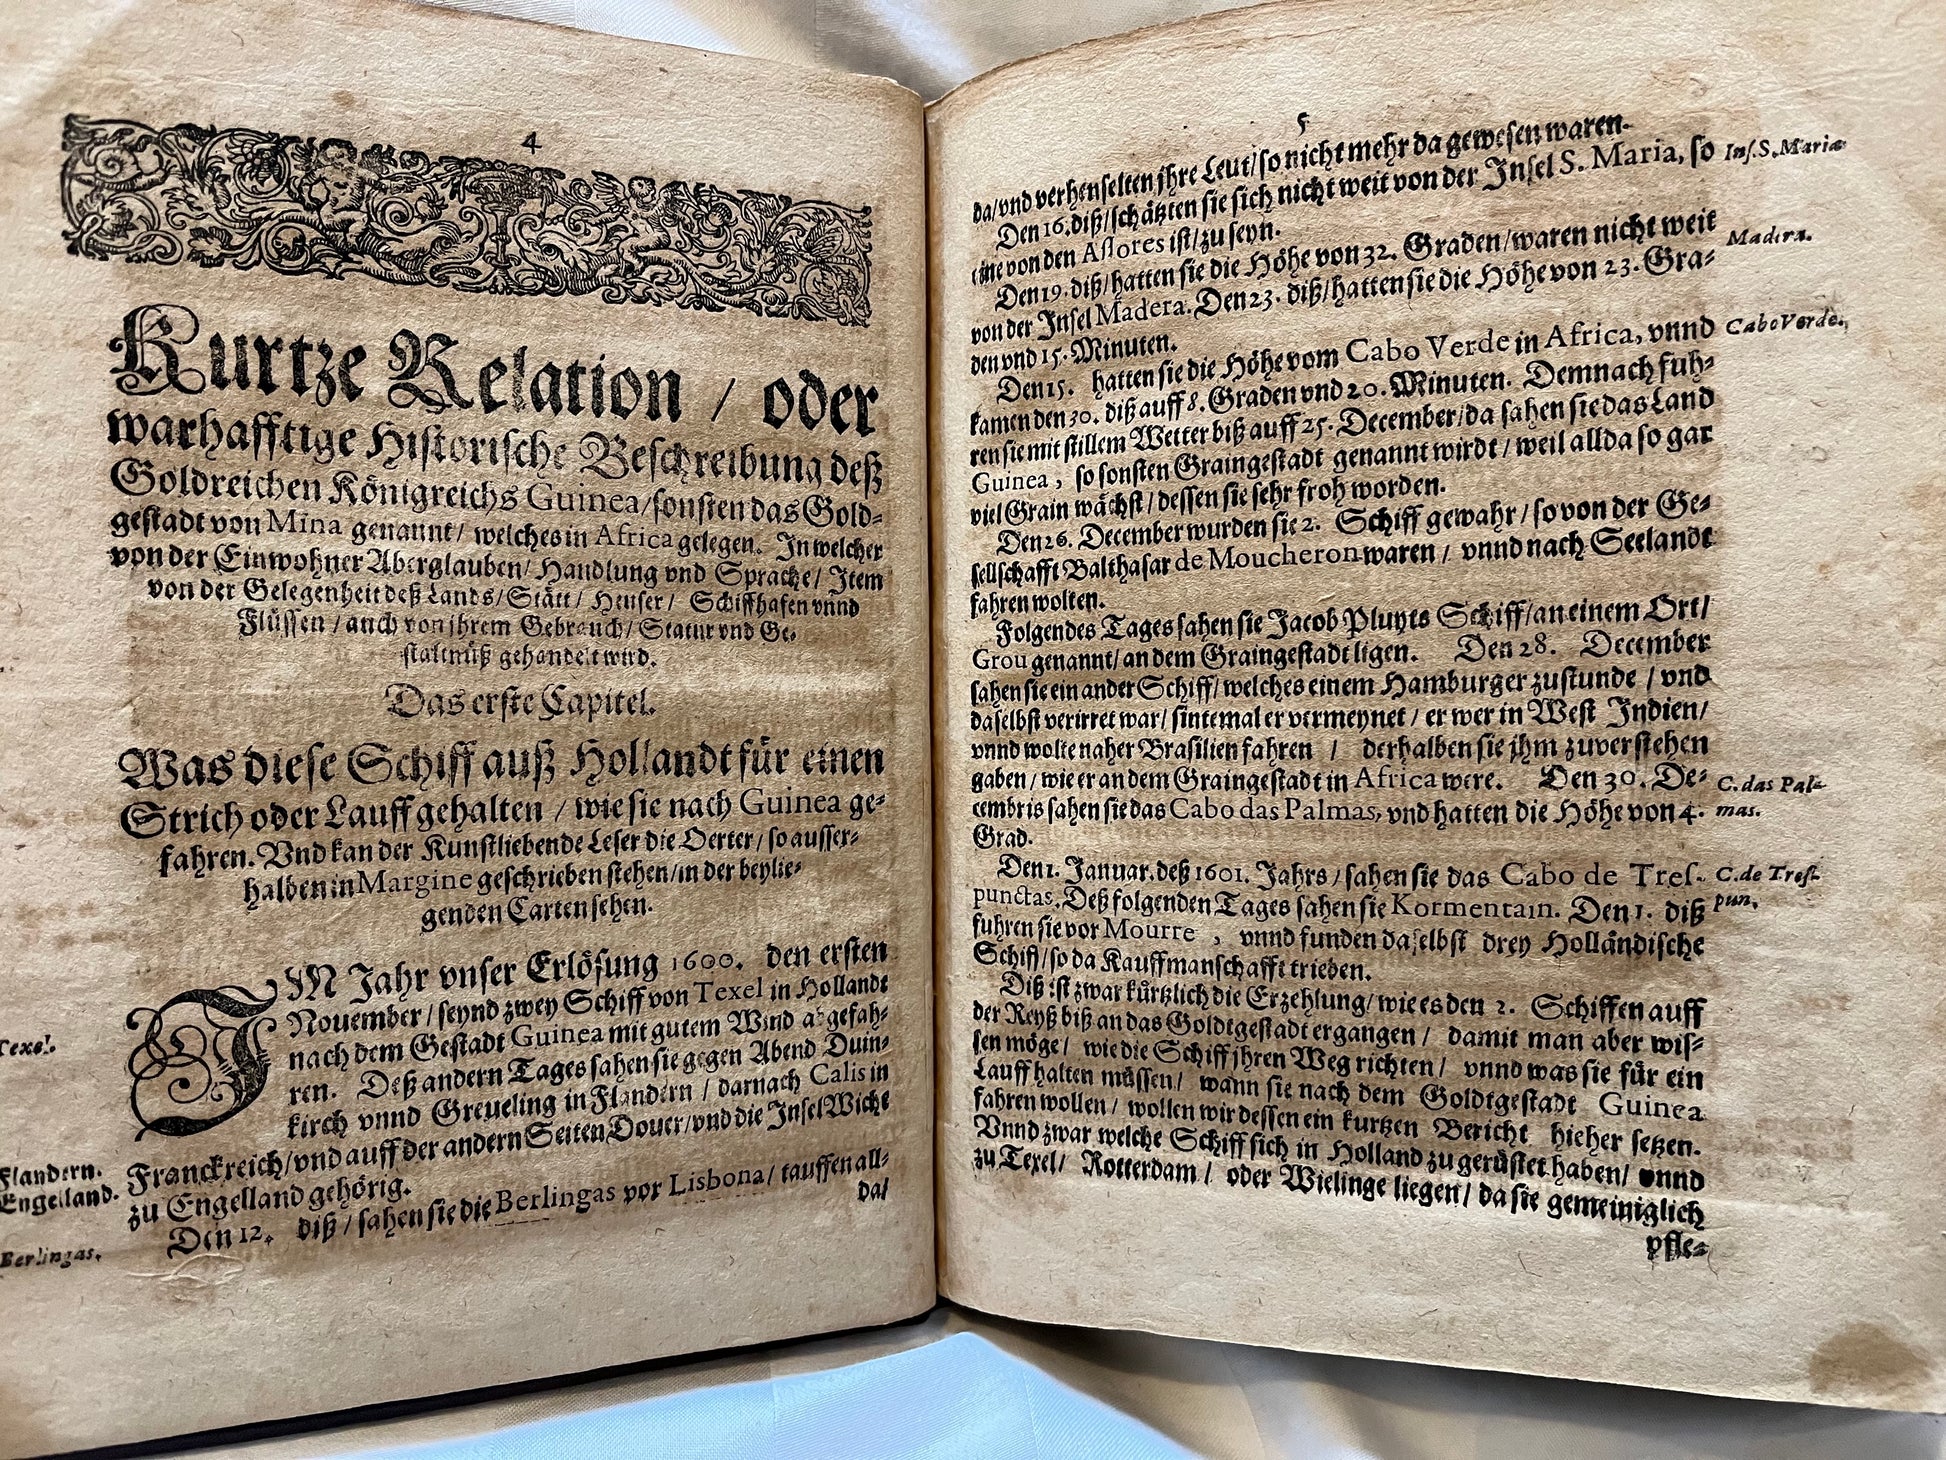 4
Kurtze Relation / oder
warhafftige Historische Beschreibung deß
Goldreichen Königreichs Guinea / sonsten das Gold-
gestadt von Mina genannt / welches in Africa gelegen. In welcher
von der Einwohner Aberglauben / Handlung vnd Sprache / Item
von der Gelegenheit deß Lands / Stätt / Heuser / Schiffhafen vnnd
Flüssen / auch von ihrem Gebrauch / Statur vnd Ge-
staltnüß gehandelt wird.
Das erste Capitel.
Was diese Schiff auß Hollandt für einen
Strich oder Lauff gehalten / wie sie nach Guinea ge-
fahren. Vnd kan der Kunstliebende Leser die Oerter / so ausser-
halben in Margine geschrieben stehen / in der beylie-
genden Carten sehen.
IM Jahr vnser Erlösung 1600. den ersten
Nouember / seynd zwey Schiff von Texel in Hollandt
nach dem Gestadt Guinea mit gutem Wind abgefah-
ren. Deß andern Tages sahen sie gegen Abend Duin-
kirch vnnd Greueling in Flandern / darnach Calis in
Franckreich / vnd auff der andern Seiten Douer / vnd die Insel Wicht
zu Engelland gehörig.
Den 12. diß / sahen sie die Berlingas vor Lisbona / tauffen all-
da /
Texel.
Flandern.
Engelland.
Berlingas.
5
da / vnd verhenselten jhre Leut / so nicht mehr da gewesen waren.
Den 16. diß / schätzten sie sich nicht weit von der Insel S. Maria, so
eine von den Assores ist / zu seyn.
Den 19. diß / hatten sie die Höhe von 32. Graden / waren nicht weit
von der Insel Madera. Den 23. diß / hatten sie die Höhe von 23. Gra-
den vnd 15. Minuten.
Den 15. hatten sie die Höhe vom Cabo Verde in Africa, vnnd
kamen den 30. diß auff 8. Graden vnd 20. Minuten. Demnach fuh-
ren sie mit stillem Wetter biß auff 25. December / da sahen sie das Land
Guinea, so sonsten Graingestadt genannt wirdt / weil allda so gar
viel Grain wächst / dessen sie sehr froh worden.
Den 26. December wurden sie 2. Schiff gewahr / so von der Ge-
sellschafft Balthasar de Moucheron waren / vnnd nach Seelandt
fahren wolten.
Folgendes Tages sahen sie Jacob Pluyts Schiff / an einem Ort /
Grou genannt / an dem Graingestadt ligen. Den 28. December
sahen sie ein ander Schiff / welches einem Hamburger zustunde / vnd
daselbst verirret war / sintemal er vermeynet / er wer in West Indien /
vnnd wolte naher Brasilien fahren / derhalben sie jhm zuverstehen
gaben / wie er an dem Graingestadt in Africa were. Den 30. De-
cembris sahen sie das Cabo das Palmas, vnd hatten die Höhe von 4.
Grad.
Den 1. Januar. deß 1601. Jahrs / sahen sie das Cabo de Tres-
punctas. Deß folgenden Tages sahen sie Kormentain. Den 1. diß
fuhren sie vor Mourre, vnnd funden daselbst drey Holländische
Schiff / so da Kauffmanschafft trieben.
Diß ist zwar kürtzlich die Erzehlung / wie es den 2. Schiffen auff
der Reyß biß an das Goldtgestadt ergangen / damit man aber wis-
sen möge / wie die Schiff jhren Weg richten / vnnd was sie für ein
Lauff halten müssen / wann sie nach dem Goldtgestadt Guinea
fahren wollen / wollen wir dessen ein kurtzen Bericht hieher setzen.
Vnnd zwar welche Schiff sich in Holland zu gerüstet haben / vnnd
zu Texel / Rotterdam / oder Wielinge liegen / da sie gemeiniglich
pfle-
Ins. S. Maria.
Madera.
Cabo Verde.
C. das Pal-
mas.
C. de Tres-
pun.